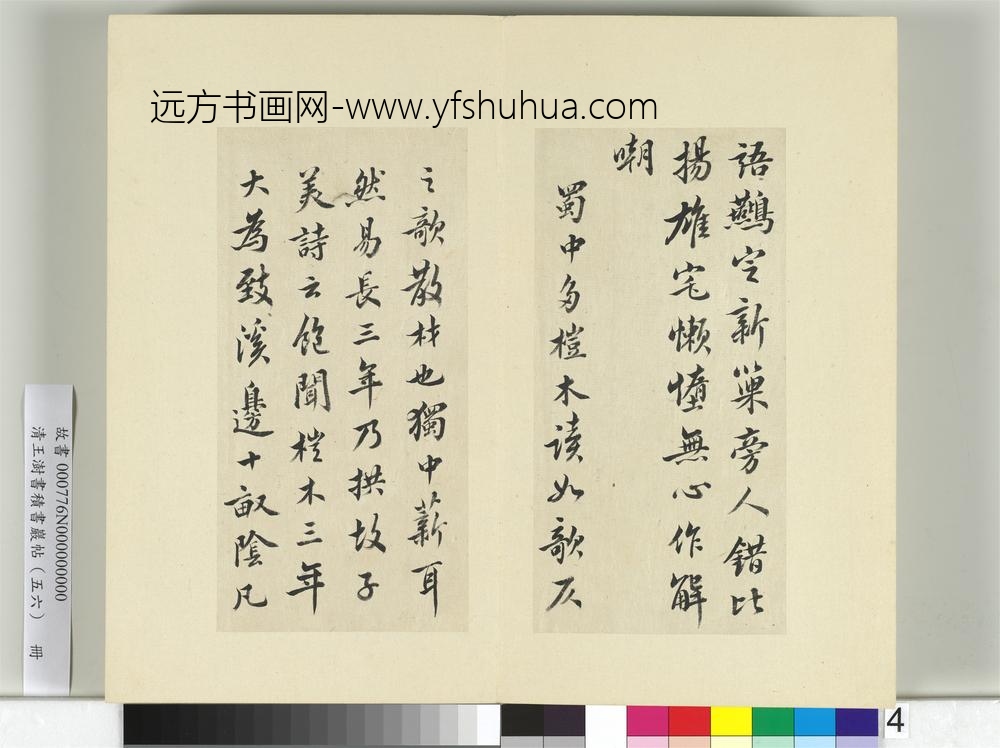 远方书画网-www.yfshuhua.com
語鷰定新巢旁人錯比
揚雄宅懶惰無心作解
嘲
蜀中多榿木讀如欹仄
之欹散材也獨中薪耳
然易長三年乃拱故子
美詩云飽聞榿木三年
大為致溪邊十畝陰凡
故書000776N000000000
清王澍書積書巖帖（五六） 冊
4